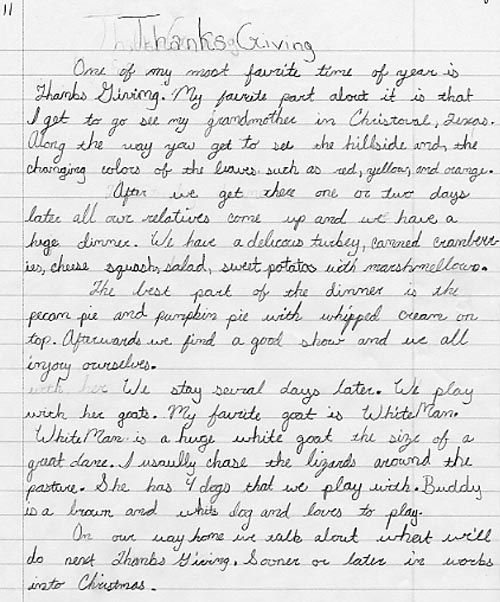 11
Thanks Giving
One of my most favrite time of year is
Thanks Giving. My favrite part about it is that
I get to go see my grandmother in Christoval, Texas.
Along the way you get to see the hillside and the
changing colors of the leaves such as red, yellow, and orange.
After we get there one or two days
later all our relatives come up and we have a
huge dinner. We have a delicous turkey, canned cranberr-
ies, cheese squash, salad, sweet potatos with marshmellows.
The best part of the dinner is the
pecan pie and pumpkin pie with whipped cream on
top. Afterwards we find a good show and we all
injoy ourselves.
We stay sevral days later. We play
with her goats. My favrite goat is WhiteMan.
WhiteMan is a huge white goat the size of a
great dane. I usaully chase the lizards around the
pasture. She has 4 dogs that we play with. Buddy
is a brown and white dog and loves to play.
On our way home we talk about what we'll
do next Thanks Giving. Sooner or later in works
into Christmas.